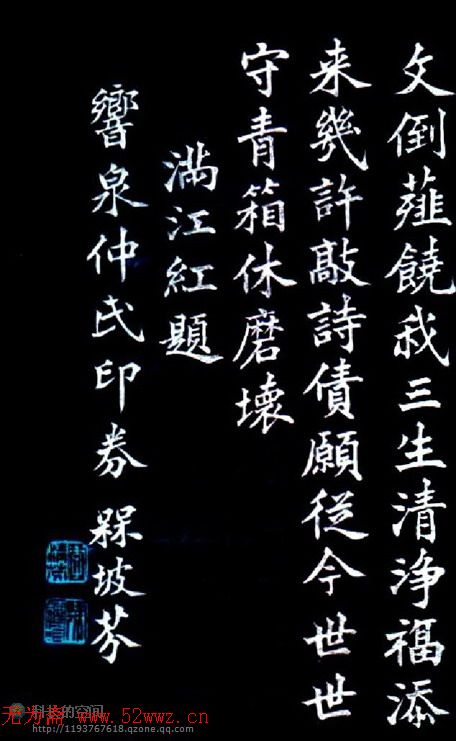 文倒薤饒我三生清浄福添
来幾許敲詩債願從今世世
守青箱休磨壞
滿江紅題
響泉仲氏印券 槑坡芬
的空间
无为斋 www.52wwz.cn
http://1193767618.qzone.qq.com